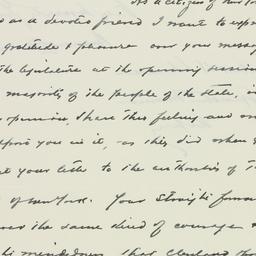 As a citizen of New Yor
as a devoted friend I want to expr
gratitude & pleasure over your messag
the legislature at the opening session
majority of the people of the State, i
opinion, share this feeling and
you in it, as they did when
at your letter to the authorities of T
of New York. Your straight forwar
over the same kind of courage &
that Cleveland sho